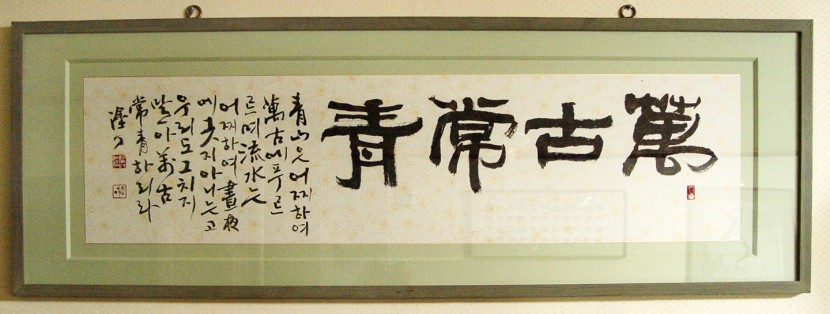 萬古常青
青山은 어찌하여
萬古에 푸르
르며 流水는
어찌하여 晝夜
에 긋지 아니는고
우리도 그치지
말아 萬古
常青하리라